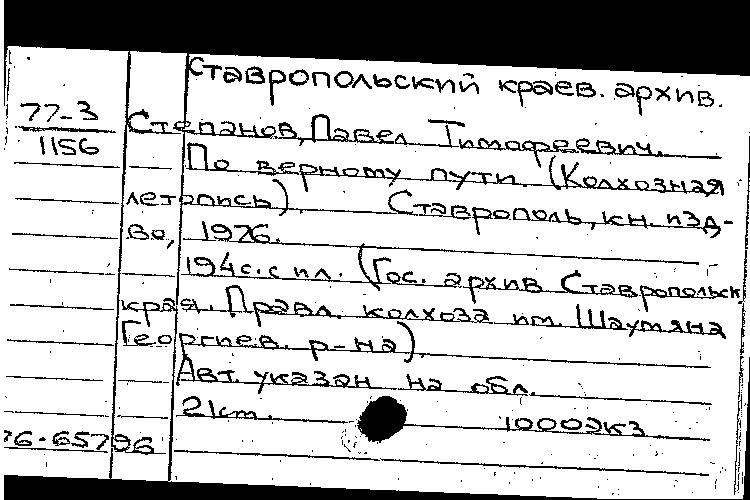 Ставропольский краев. архив.
77-3
Степанов, Павел Тимофеевич.
1156
По верному пути. (Колхозная
летопись). Ставрополь, кн. изд-
во, 1976.
194с. с ил. (Гос. архив Ставропольск.
края. Правл. колхоза им. Шаумяна
Георгиев. р-на).
Авт. указан на обл.
21 см. 1000 экз
76-65796